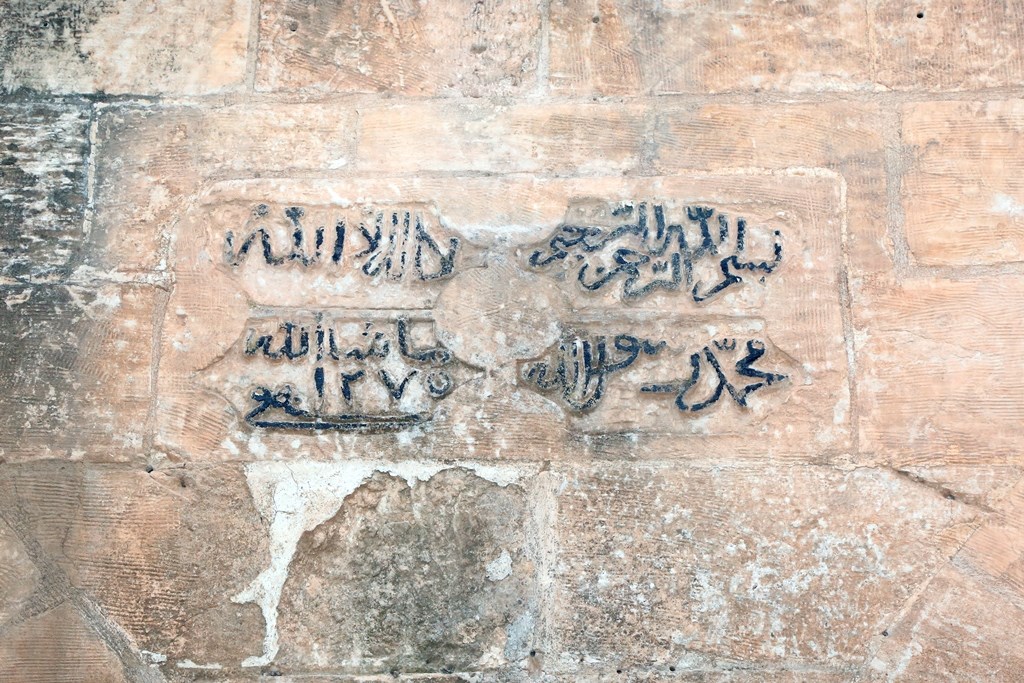 بسم الله الرحمن الرحيم
لا اله الا الله
محمد رسول الله
ما شاء الله
١٢٧٥